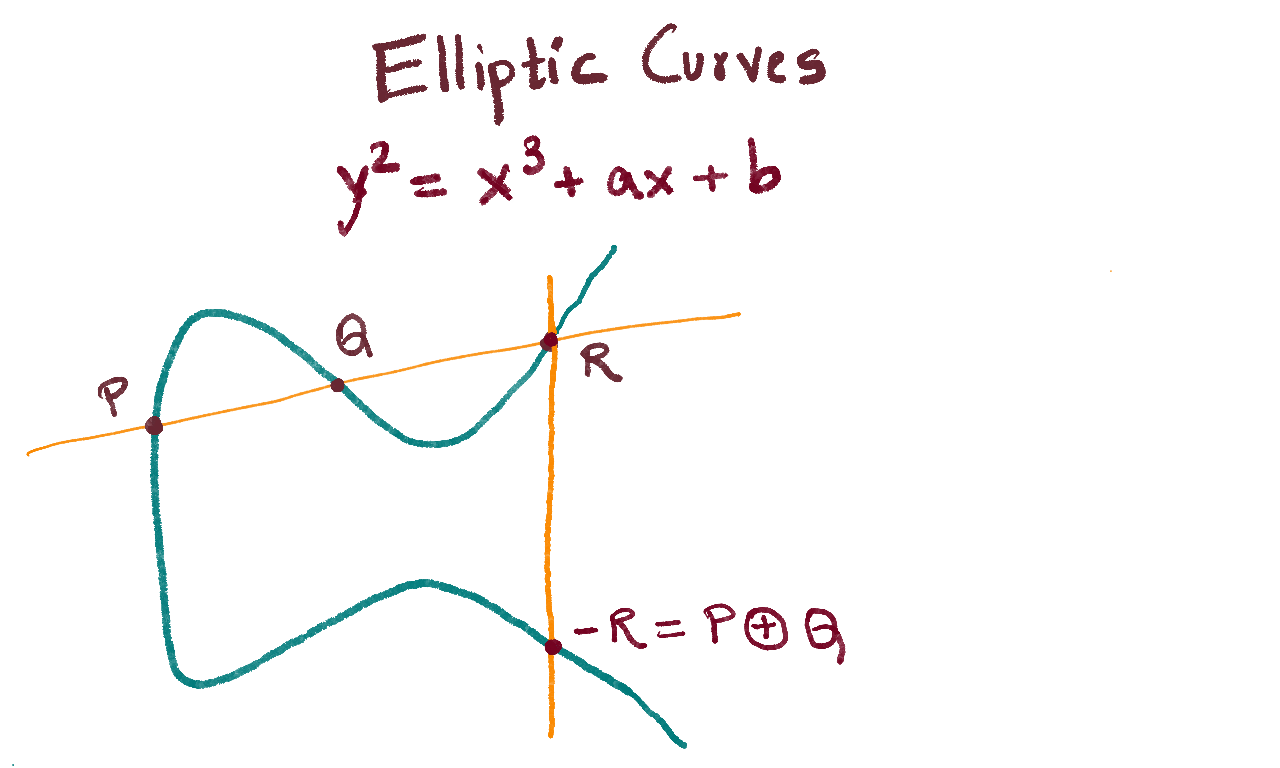 Elliptic Curves
y² = x³ + ax + b
Q
P
R
-R = P ⊕ Q